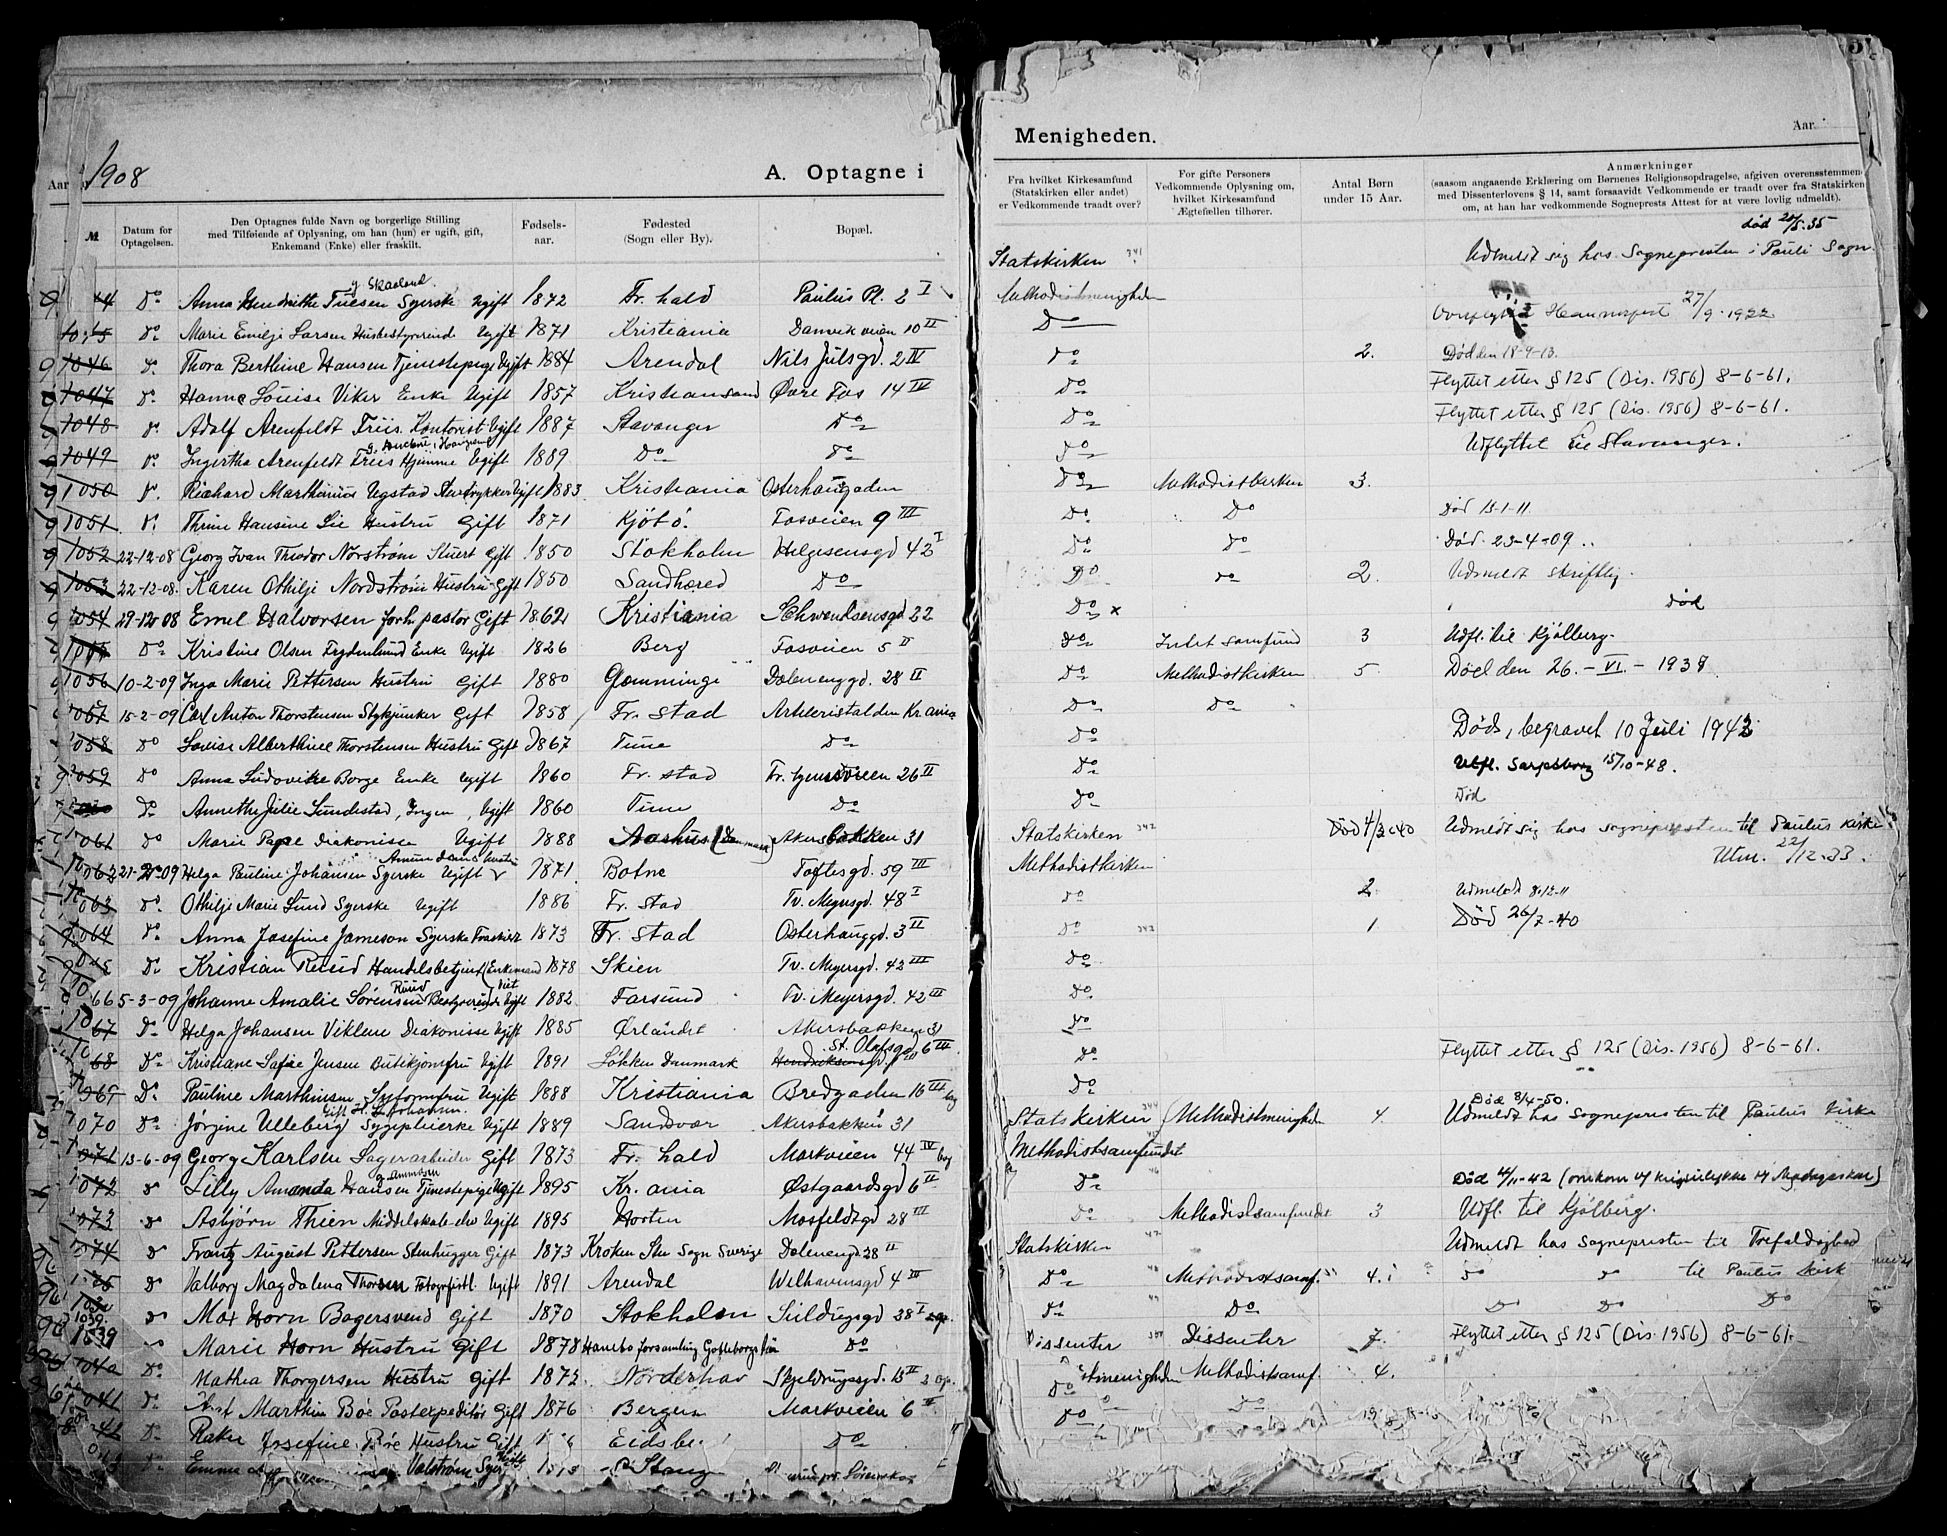 Aar 1908
A. Optagne i
№
Datum for Optagelsen.
Den Optagnes fulde Navn og borgerlige Stilling
med Tilføiende af Oplysning, om han (hun) er ugift, gift,
Enkemand (Enke) eller fraskilt.
Fødsels-
aar.
Fødested
(Sogn eller By).
Bopæl.
g Skaaland.
44 Do Anna Hendrikke Tufesen Syerske Ugift 1872 Fr. hald Paulus Pl. 2 I
1045 Do Marie Emilje Larsen Husbestyrerinde Ugift 1871 Kristiania Danvik veien 10 II
1046 Do Thora Berthine Hansen Tjenestepige Ugift 1884 Arendal Nils Julsgd. 2 IV
1047 Do Hanna Louise Viker Enke Ugift 1857 Kristiansand Øvre Fos 14 IV
1048 Do Adolf Arenfeldt Friis Kontorist Ugift 1887 Stavanger Do
1049 Do Ingertha Arenfeldt Friis Hjemme Ugift 1889 Do Do
1050 Do Richard Marthinus Ugstad Stentrykker Ugift 1883 Kristiania Osterhausgaden
1051 Do Thrine Hansine Lie Hustru Gift 1871 Kjøtø. Fosveien 9 III
1052 22-12-08 Georg Ivan Theodor Norstrøm Stuert Gift 1850 Stokholm Helgesensgd 42 I
1053 22-12-08. Karen Othilje Nordstrøm Hustru Gift 1850 Sandhered Do
1054 29-12-08 Emel Halvorsen forh. pastor Gift 1862 Kristiania Schwendsensgd 22
1055 Do Kristine Olsen Frydenlund Enke Ugift 1826 Berg Fosveien 5 II
1056 10-2-09 Inga Marie Pettersen Hustru Gift 1880 Gemminge Dælenenggd. 28 II
1057 15-2-09 Carl Anton Thorstensen Stykjunker Gift 1858 Fr. stad Artileristalden Kr.ania
1058 Do Lovise Alberthine Thorstensen Hustru Gift 1867 Tune Do
1059 Do Anna Ludovikke Borge Enke Ugift 1860 Fr. stad Fr. hjemsveien 26 II
Do Annethe Julie Sundestad, Ingen, Ugift 1860 Tune Do
1061 Do Marie Pape Diakonisse Ugift 1888 Aarhus (Danmark) Akersbakken 31
1062 21-2-09 Helga Pauline Johansen Syerske Ugift 1871 Botne Toftesgd. 59 III
1063 Do Othilje Marie Lund Syerske Ugift 1886 Fr. stad Tv. Meyersgd. 48 I
1064 Do Anna Josefine Jameson Syerske Fraskilt 1873 Fr. stad Osterhausgd. 3 II
1065 Do Kristian Ruud Handelsbetjent (Enkemand 1878 Skien Tv. Meyersgd. 42 III
Ruud
1066 5-3-09 Johanne Amalie Sørensen Bestyrerinde Ugift 1882 Farsund Tv. Meyersgd. 42 III
1067 Do Helga Johansen Viklem Diakonisse Ugift 1885 Ørlandet Akersbakken 31
St. Olafsgd 6 III
1068 Do Kristiane Sofie Jensen Butikjomfru Ugift 1891 Løkken Danmark Hendriksensgd
1069 Do Pauline Marthinsen Syjomfru Ugift 1888 Kristiania Bredgaden 16 III bg
Gift H. L. Johansen.
1070 Do Jørgine Ulleberg Sygepleierke Ugift 1889 Sandvær Akersbakken 31
1071 13-6-09 Georg Karlsen Sagerarbeider Gift 1873 Fr. hald Markveien 44 IV bg
1072 Do Lilly Amanda Hansen Tjenestepige Ugift 1895 Kr. ania Østgaardsgd 6 II
1073 Do Asbjørn Thien Middelskoleelev Ugift 1895 Horten Mosfeldtsgd 28 III
1074 Do Frantz August Pettersen Stenhugger Gift 1873 Kroken Sogn Sverige Dælenengd 28 II
Do Valborg Magdalena Thorsen Fotografistl. Ugift 1891 Arendal Welhavensgd 4 III
Do Max Horn Bagersvend Gift 1870 Stokholm Suldrupsgd 28 I
1039 Do Marie Horn Hustru Gift 1878 Hanebo forsamling Gotteborgs Do
1040 Do Mathea Thorgersen Hustru Gift 1872 Norderhov Skjeldrupsgd. 15 II
1041 Do Marthin Bøe Postexpeditør Gift 1876 Bergen Markveien 6 II
42 Do Josefine Bøe Hustru Gift Eidsbe Do
Emma Valstrøm Syer Stang
Menigheden.
Aar
Fra hvilket Kirkesamfund
(Statskirken eller andet)
er Vedkommende traadt over?
For gifte Personers
Vedkommende Oplysning om,
hvilket Kirkesamfund
Ægtefællen tilhører.
Antal Børn
under 15 Aar.
Anmærkninger
(saasom angaaende Erklæring om Børnenes Religionsopdragelse, afgiven overensstemmende
med Dissenterlovens § 14, samt forsaavidt Vedkommende er traadt over fra Statskirken
om, at han har vedkommende Sogneprests Attest for at være lovlig udmeldt).
død 24/5.35
Statskirken 341 Udmeldt sig hos Sognepresten i Pauli Sogn
Methodistmenigheden
Do Overflyttet Hammerfest 27/9.1922
Do 2. Død den 18-9-13.
Do Flyttet etter § 125 (Dis. 1956) 8-6-61.
Do Flyttet etter § 125 (Dis. 1956) 8-6-61.
Do Udflyttet til Stavanger.
Do Methodistkirken 3.
Do Do Død 13-1-11
Do Do Død. 23-4-09.
Do Do 2. Udmeldt skriftlig.
Do x Død
Do Intet samfund 3 Udfl. til Kjølberg.
Do Methodistkirken 5. Død den 26.-VI.-1938.
Do Do
Do Død, begravet 10 Juli 1942
Do Utfl. Sarpsborg 15/10-48.
Do Død
Statskirken 342 Død 4/3-40 Udmeldt sig hos sognepresten til Paulus Kirke
Methodistkirken Utm. 22/12.33.
Do 2 Udmeldt 8-12-11
Do 342 1 Død 26/7-40
Do
Do
Do
Do Flyttet etter § 125 (Dis. 1956) 8-6-61.
Do
Død 8/4-50.
Statskirken Methodistmenigheden 4. Udmeldt hos Sognepresten til Paulus Kirke
Methodistsamfundet
Do Død 4/11-42 (omkom v/ krigsulykke v/ Madagaskar)
Do Methodistsamfundet 3 Udfl. til Kjølberg.
Statskirken Udmeldt hos Sognepresten til Trefoldighed
Do Methodistsamf. 4. Do Do til Paulus Kirk
Do Do Do Do Do
Dissenter Dissenter 7. Flyttet etter § 125 (Dis. 1956) 8-6-61.
menigheden Methodistsamf. 4.
Do
Do Do